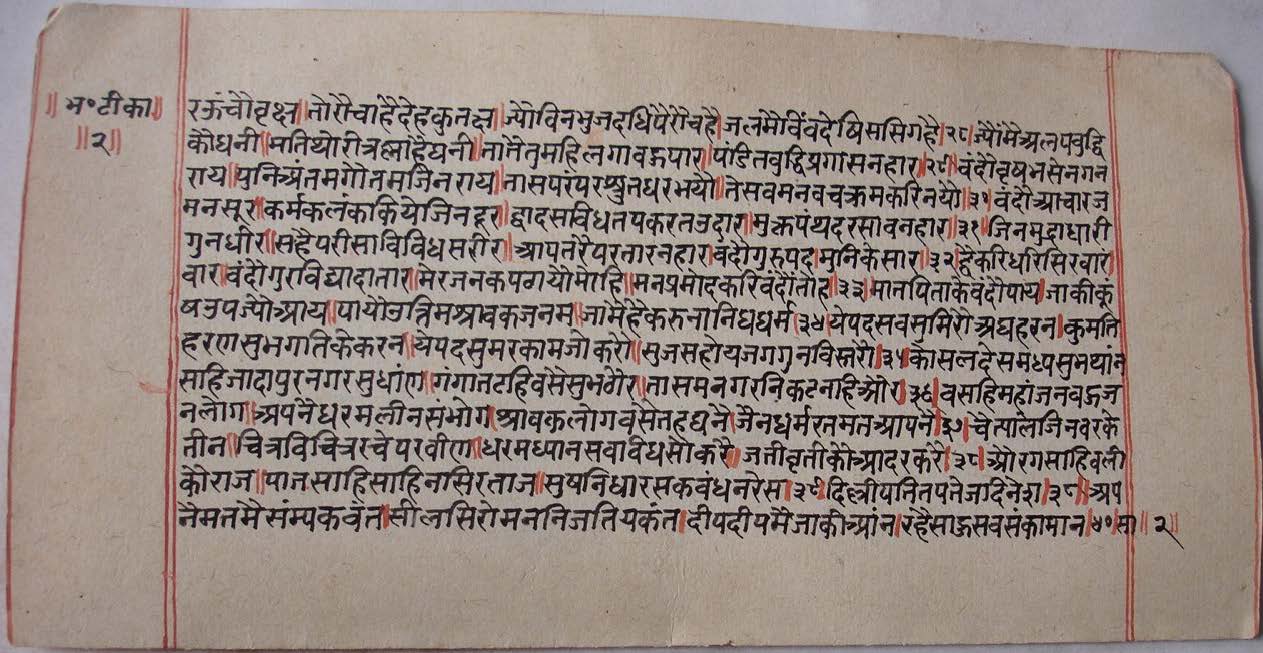 ॥ भ॰ टीका ॥
॥ २ ॥
रऊंचौवृक्ष । तोरौचाहैदेहकुतक्ष । ज्यौविनभुजदधिपैरोचहै । जलमैविंवदेषिससिगहै । २८ । ज्यौंमैअलपवुद्धि
कौधनी । मतिथोरीत्रस्नाहैघनी । तामैतुमहिलगावऊपार । पंडितवुद्धिप्रगासनहार । २९ । वंदौवृषभसेनगन
राय । पुनिअंतमगौतमजिनराय । तासपरंपरश्रुतधरभयौ । तेसवमनवचक्रमकरिनयौ । ३० । वंदौआचारज
मनसूर । कर्मकलंककियेजिनदूर । द्वादसविधतपकरतउदार । मुक्तपंथदरसावनहार । ३१ । जिनमुद्राधारी
गुनधीर । सहैपरीसाविविधसरीर । आपतरैपरतारनहार । वंदौगुरुपदमुनिकेसार । ३२ । द्वैकरिधरिसिरवारं
वार । वंदौगुरविद्यादातार । मेरजनकपढायौमोहि । मनप्रमोदकरिवंदौतोह । ३३ । मातपिताकेवंदौपाय । जाकीकूं
षउपज्यौआय । पायौउत्तिमश्रावकजनम । जामैहैकरुनानिधधर्म । ३४ । येपदसवसुमिरोअघहरन । कुमति
हरणसुभगतिकेकरन । येपदसुमरकामजोकरौ । सुजसहोयजगगुनविस्तरौ । ३५ । कोसलदेसमध्यसुभथांन
साहिजादापुरनगरसुधांण । गंगातटहिवंसैसुभठौर । तासमनगरनिकटनहिऔर । ३६ । वसहिमहांजनवऊज
नलोग । अपनैधरमलीनसंभोग । श्रावकलोगवंसेतहघनै । जैनधर्मरतमतआपनै । ३७ । चैत्यालेजिनवरके
तीन । चित्रविचित्ररचेपरवीण । धरमध्यानसवविधसौकरै । जतीवृतीकोआदरकरै । ३८ । औरगसाहिवली
कौराज । पातसाहिसाहिनसिरताज । सुषनिधारसकवंधनरेस । दिल्लीपतितपतेजदिनेश । ३९ । अप
नैमतमैसंम्यकवंत । सीलसिरोमननिजतियकंत । दीपदीपमैजाकीआंन । रहैसाऊसवसंकामान । ४० । सा ॥ २ ॥